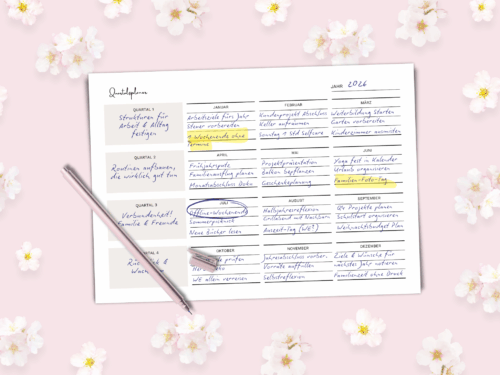 Quartalsplaner
JAHR: 2026
QUARTAL 1
Strukturen für
Arbeit & Alltag
festigen
JANUAR
Arbeitsziele fürs Jahr
Steuer vorbereiten
1 Wochenende ohne
Termine
FEBRUAR
Kinderprojekt Abschluss
Keller aufräumen
Sonntag = Std Selfcare
MÄRZ
Weiterbildung starten
Garten vorbereiten
Kinderzimmer ausmisten
QUARTAL 2
Routinen aufbauen,
die wirklich gut tun
APRIL
Frühjahrsputz
Familienausflug planen
Monatsabschluss Doku
MAI
Projektpräsentation
Balkon bepflanzen
Geschenkeplanung
JUNI
Yoga fest in Kalender
Urlaub organisieren
Familien-Foto-Tag
QUARTAL 3
Verbundenheit!
Familie & Freunde
JULI
Offline-Wochenende
Sommerpicknick
Neue Bücher lesen
AUGUST
Halbjahresreflexion
Grillabend mit Nachbarn
Auszeit-Tag (WE!)
SEPTEMBER
Q4 Projekte planen
Schulstart organisieren
Weihnachtsbudget Plan
QUARTAL 4
OKTOBER
prüfen
WE allein verreisen
NOVEMBER
Jahresabschluss vorber.
Vorräte auffüllen
Selbstreflexion
DEZEMBER
Ziele & Wünsche für
nächstes Jahr notieren
Familienzeit ohne Druck